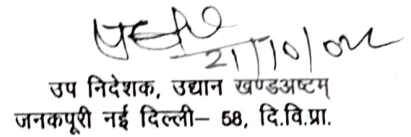 21/10/02
उप निदेशक, उद्यान खण्डअष्टम्
जनकपूरी नई दिल्ली– 58, दि.वि.प्रा.